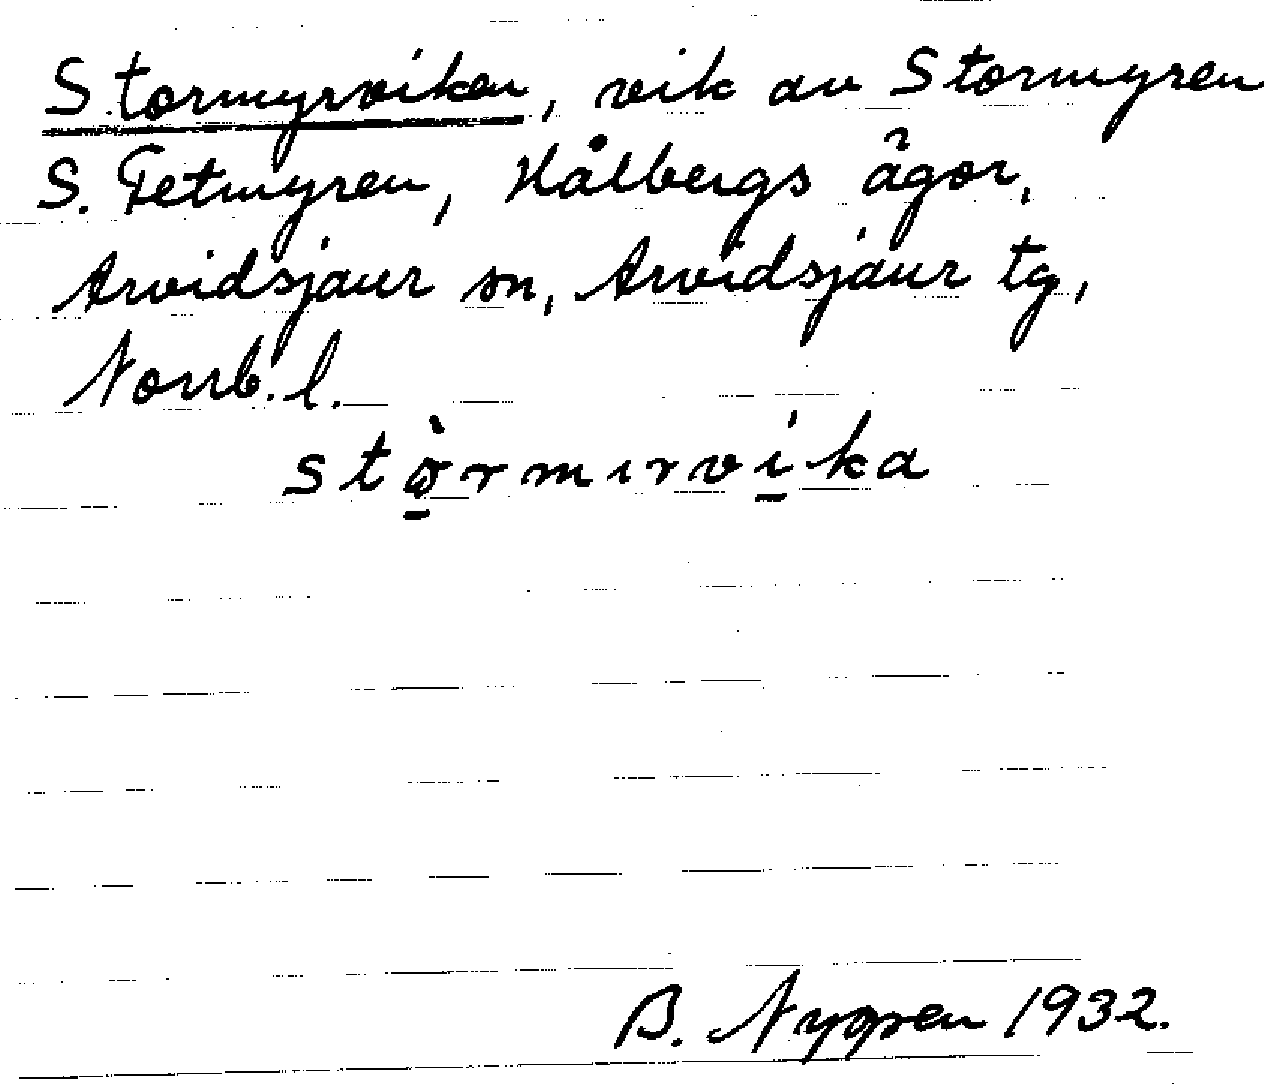 Stormyrviken, vik av Stormyren
S. Tetmyren, Hålbergs ägor,
Arvidsjaur sn, Arvidsjaur tg,
Norrb. l.
stòrmırvika
B. Nygren 1932.